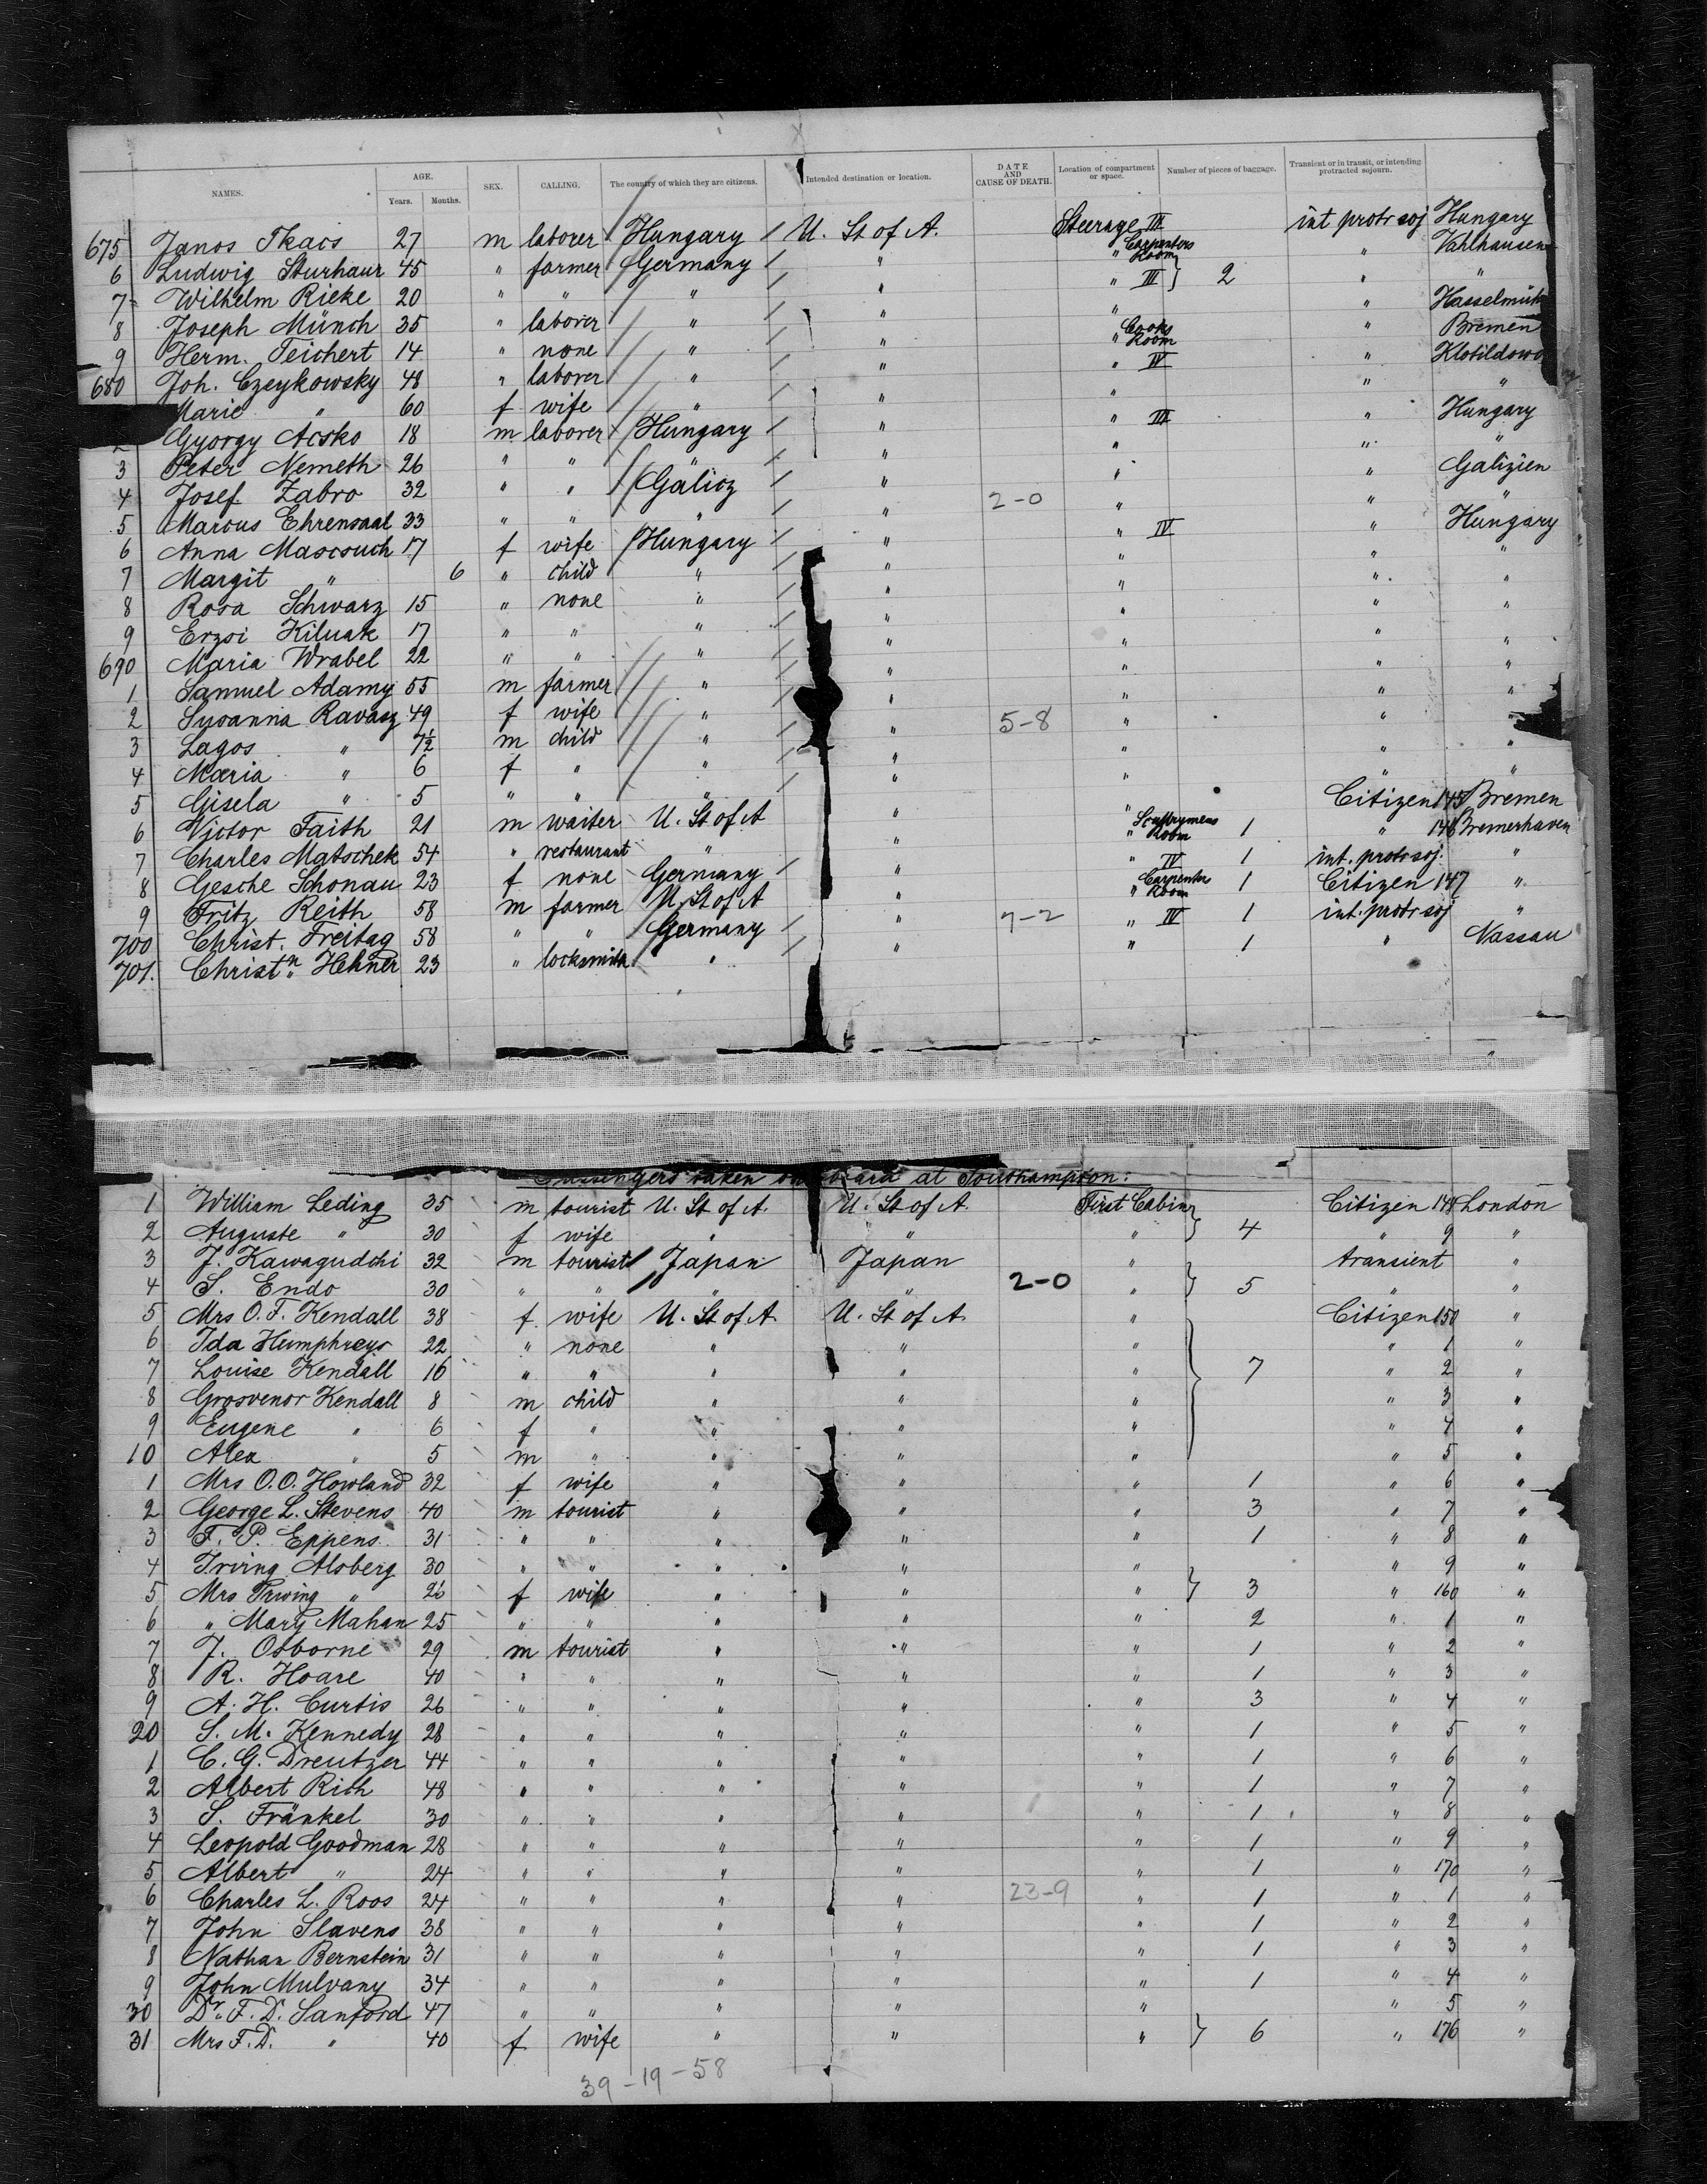 NAMES. AGE. Years. Months. SEX. CALLING. The country of which they are citizens. Intended destination or location. DATE AND CAUSE OF DEATH. Location of compartment or space. Number of pieces of baggage. Transient or in transit, or intending protracted sojourn.
675 Janos Tkacs 27 m laborer Hungary / U. St of A. Steerage III int protr soj Hungary
6 Ludwig Sturhaur 45 " farmer Germany / " " Carpenters Room " Vahlhausen
7 Wilhelm Rieke 20 " " " / " " III } 2 " "
8 Joseph Münch 35 " laborer " / " " " Hasselmüh
9 Herm. Teichert 14 " none " / " " Cooks Room " Bremen
680 Joh. Czeykowsky 48 " laborer " / " " IV " Klotildowo
Marie " 60 f wife " / " " " "
2 Gyorgy Acsko 18 m laborer Hungary / " " III " Hungary
3 Peter Nemeth 26 " " " / " " " "
4 Josef Zabro 32 " " Galicz / " " " Galizien
5 Marcus Ehrensaal 33 " " " / " 2-0 " " "
6 Anna Mascsuch 17 f wife Hungary / " " IV " Hungary
7 Margit " 6 " child " / " " " "
8 Rosa Schwarz 15 " none " / " " " "
9 Erzsi Kiluak 17 " " " / " " " "
690 Maria Wrabel 22 " " " / " " " "
1 Samuel Adamy 55 m farmer " / " " " "
2 Susanna Ravasz 49 f wife " / " " " "
3 Lagos " 7½ m child " / " 5-8 " "
4 Maria " 6 f " " / " " " "
5 Gisela " 5 " " " / " " " "
6 Victor Faith 21 m waiter U. St of A " " Room 1 Citizen 145 Bremen
7 Charles Matschek 54 " restaurant " " " 146 Bremerhaven
8 Gesche Schonau 23 f none Germany / " " IV 1 int. protr soj. "
9 Fritz Reith 58 m farmer U. St of A " " Carpenter Room 1 Citizen 147 "
700 Christ. Freitag 58 " " Germany / " 7-2 " IV 1 int. protr soj "
701. Christn. Hehner 23 " locksmith " / " " 1 " Nassau
Passengers taken on board at Southampton:
1 William Leding 35 m tourist U. St of A. U. St of A. First Cabin Citizen 148 London
2 Auguste " 30 f wife " " " } 4 " 9 "
3 J. Kawagudchi 32 m tourist Japan Japan " transient "
4 S. Endo 30 " " " " 2-0 " } 5 " "
5 Mrs O. F. Kendall 38 f. wife U. St of A. U. St of A " Citizen 150 "
6 Ida Humphreys 22 " none " " " " 1 "
7 Louise Kendall 16 " " " " " } 7 " 2 "
8 Grosvenor Kendall 8 m child " " " " 3 "
9 Eugene " 6 f " " " " " 4 "
10 Alex " 5 m " " " " " 5 "
1 Mrs O. O. Howland 32 f wife " " " 1 " 6 "
2 George L. Stevens 40 m tourist " " " 3 " 7 "
3 F. P. Eppens 31 " " " " " 1 " 8 "
4 Irving Alsberg 30 " " " " " " 9 "
5 Mrs Irwing " 26 f wife " " " } 3 " 160 "
6 " Mary Mahan 25 " " " " " 2 " 1 "
7 J. Osborne 29 m tourist " " " 1 " 2 "
8 R. Hoare 40 " " " " " 1 " 3 "
9 A. H. Curtis 26 " " " " " 3 " 4 "
20 S. M. Kennedy 28 " " " " " 1 " 5 "
1 C. G. Dreutzer 44 " " " " " 1 " 6 "
2 Albert Rich 48 " " " " " 1 " 7 "
3 S. Fränkel 30 " " " " " 1 " 8 "
4 Leopold Goodman 28 " " " " " 1 " 9 "
5 Albert " 24 " " " " " 1 " 170 "
6 Charles L. Roos 24 " " " " 23-9 " 1 " 1 "
7 John Slavens 38 " " " " " 1 " 2 "
8 Nathan Bernstein 31 " " " " " 1 " 3 "
9 John Mulvany 34 " " " " " 1 " 4 "
30 Dr. F. D. Sanford 47 " " " " " " 5 "
31 Mrs F. D. " 40 f wife " " " } 6 " 176 "
39-19-58